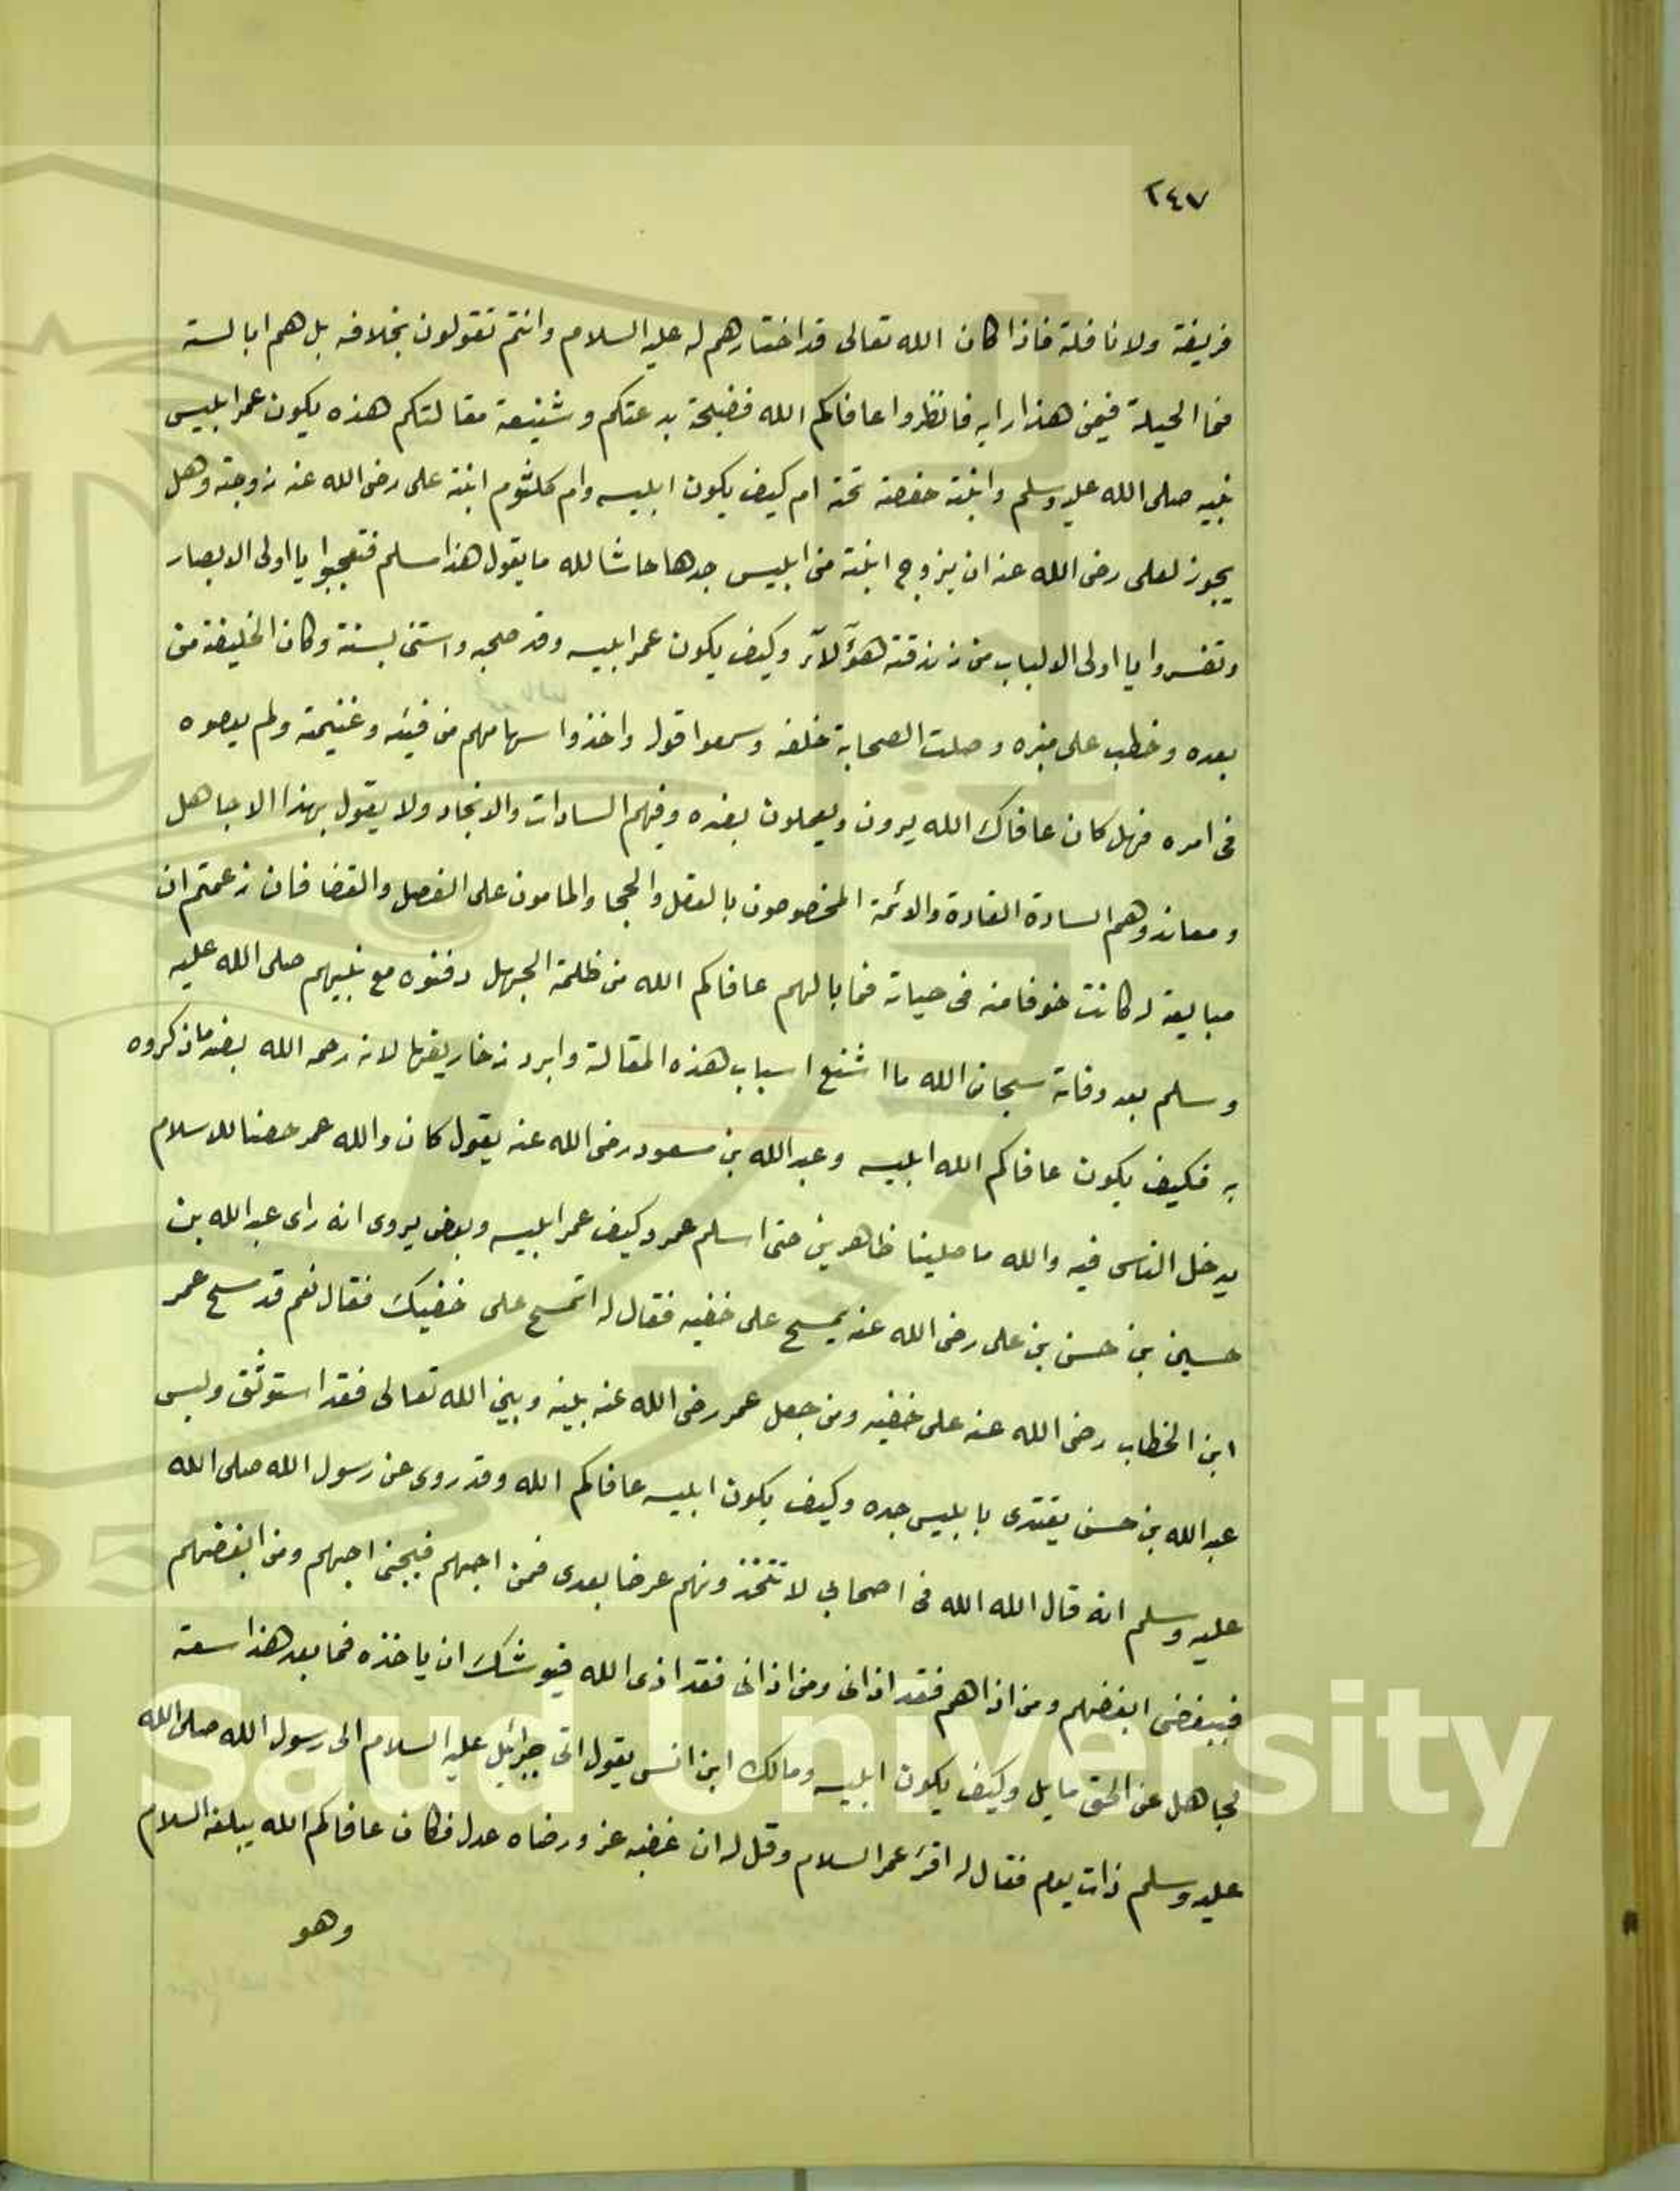 ٢٤٧
فريضة ولا نافلة فاذا كان الله تعالى قد اختارهم له عليه السلام وانتم تقولون بخلافه بل هم ابالسة
فما الحيلة فيمن هذا رايه فانظروا عافاكم الله فضيحة بدعتكم وشنيعة مقالتكم هذه يكون عمر ابليس
نبيه صلى الله عليه وسلم وابنته حفصة تحته ام كيف يكون ابليسه وام كلثوم ابنة على رضى الله عنه زوجته وهل
يجوز لعلى رضى الله عنه ان يزوج ابنته من ابليس جدها حاشا لله ما يقول هذا مسلم فتعجبوا يا اولى الابصار
وتفسروا يا اولى الالباب من زندقة هؤلآء وكيف يكون عمر ابليسه وقد صحبه واستن بسنته وكان الخليفة من
بعده وخطب على منبره وصلت الصحابة خلفه وسمعوا قوله واخذوا سهامهم من فيئه وغنيمته ولم يعصوه
فى امره فهل كان عافاك الله يرون ويعملون بضده وفيهم السادات والانجاد ولا يقول بهذا الا جاهل
ومعاند وهم السادة القادة والائمة المخصوصون بالعقل والحجا والمامون على الفصل والقضا فان زعمتم ان
مبايعته له كانت خوفا منه فى حياته فما بالهم عافاكم الله من ظلمة الجهل دفنوه مع نبيهم صلى الله عليه
وسلم بعد وفاته سبحان الله ما اشنع اسباب هذه المقالة وابرد زخاريفها لانه رحمه الله بضد ما ذكروه
به فكيف يكون عافاكم الله ابليسه وعبد الله بن مسعود رضى الله عنه يقول كان والله عمر حصنا للاسلام
يدخل الناس فيه والله ما صلينا ظاهرين حتى اسلم عمر وكيف عمر ابليسه وبعض يروى انه راى عبد الله بن
حسين بن حسن بن على رضى الله عنه يمسح على خفيه فقال له اتمسح على خفيك فقال نعم قد مسح عمر
ابن الخطاب رضى الله عنه على خفيه ومن جعل عمر رضى الله عنه بينه وبين الله تعالى فقد استوثق وليس
عبد الله بن حسن يقتدى بابليس جده وكيف يكون ابليسه عافاكم الله وقد روى عن رسول الله صلى الله
عليه وسلم انه قال الله الله فى اصحابى لا تتخذونهم عرضا بعدى فمن احبهم فبحبى احبهم ومن ابغضهم
فببغضى ابغضهم ومن اذاهم فقد اذانى ومن اذانى فقد اذى الله فيوشك ان ياخذه فما بعد هذا سعة
لجاهل عن الحق مايل وكيف يكون ابليسه ومالك ابن انس يقول اتى جبرائيل عليه السلام الى رسول الله صلى الله
عليه وسلم ذات يوم فقال له اقرئ عمر السلام وقل له ان غضبه عز ورضاه عدل فكان عافاكم الله يبلغه السلام
وهو
King Saud University